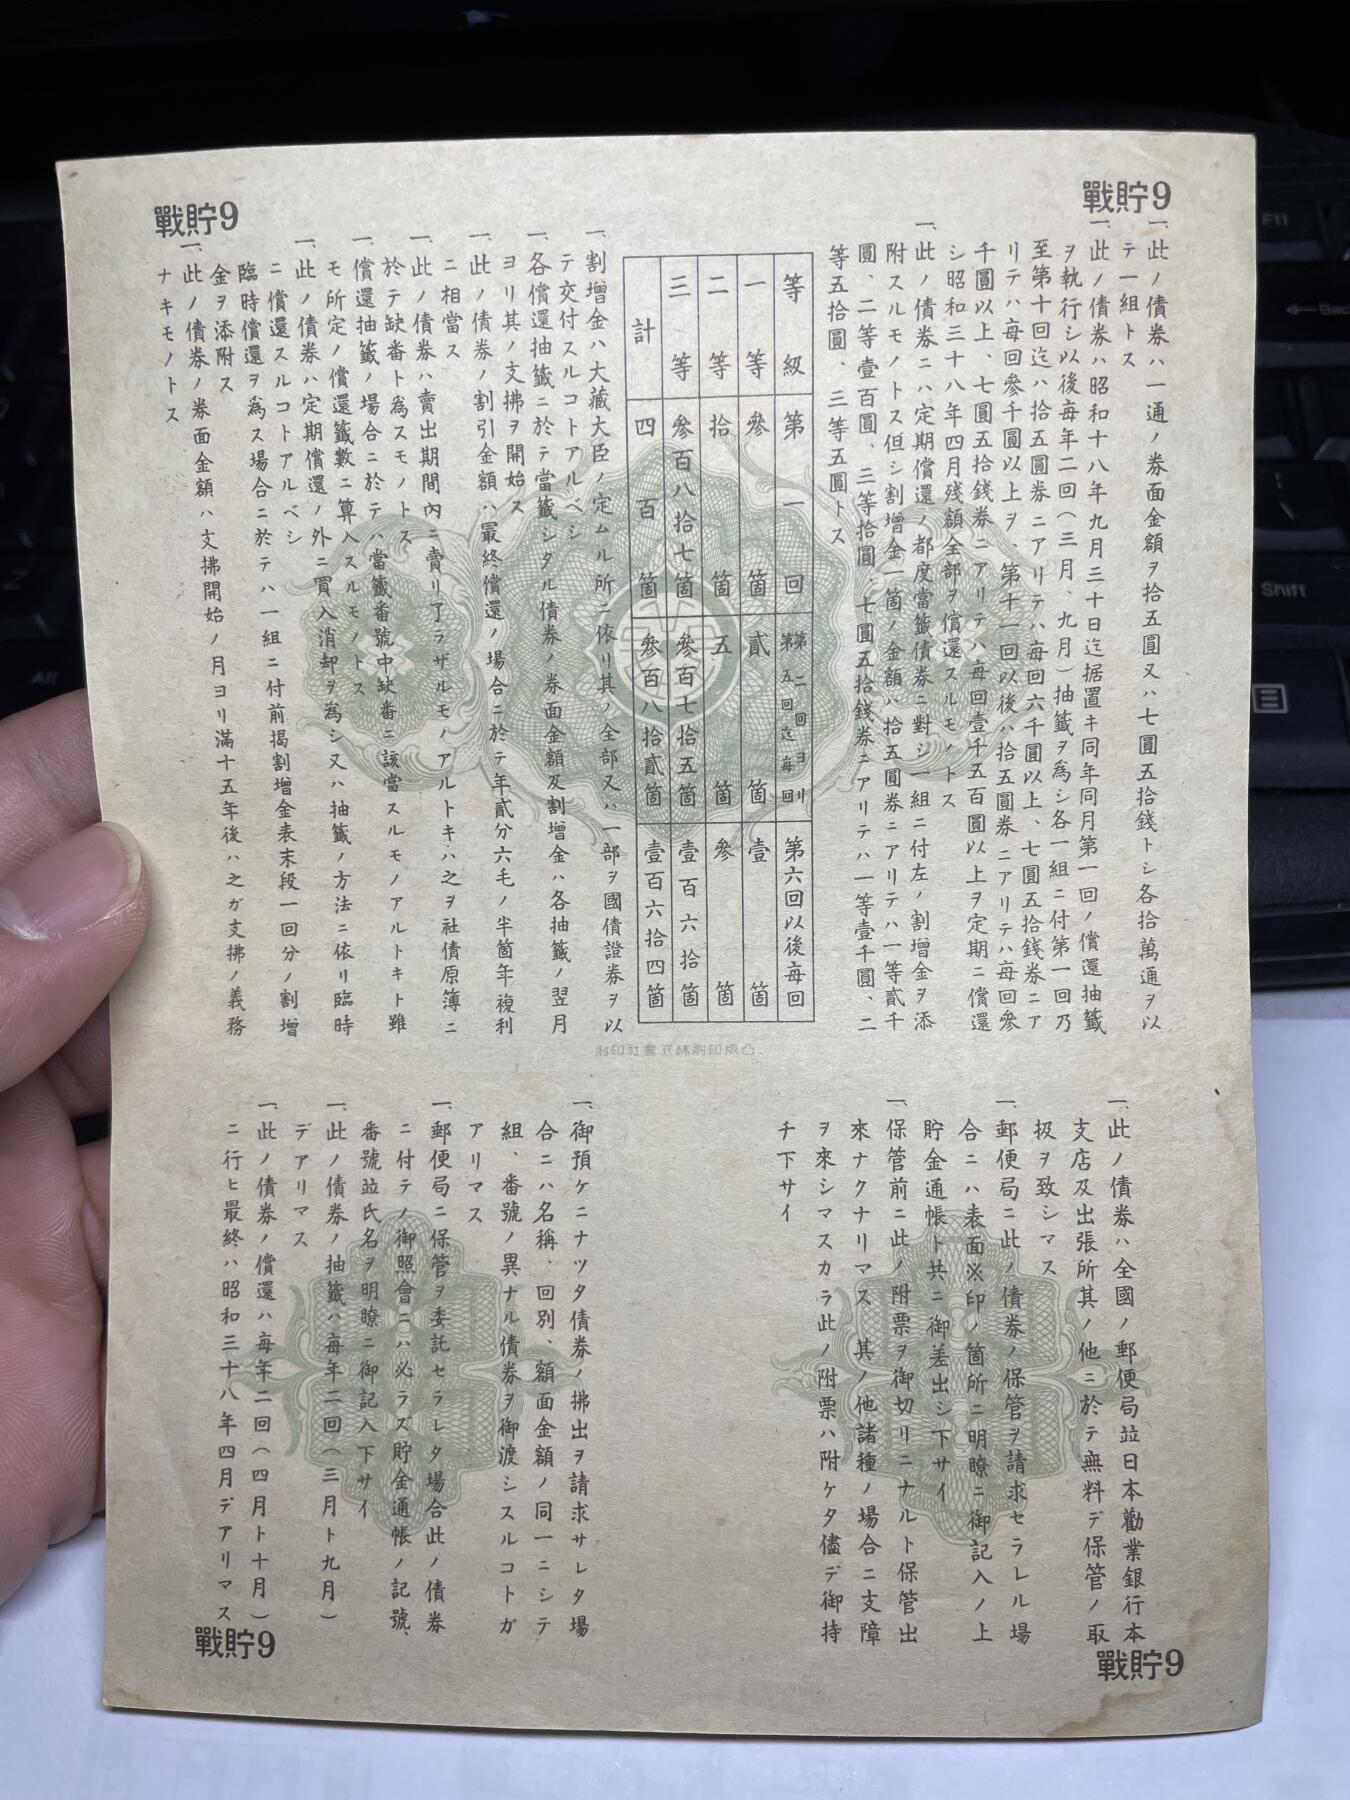 戰貯9
戰貯9
一、此ノ債券ハ一通ノ券面金額ヲ拾五圓又ハ七圓五拾錢トシ各拾萬通ヲ以
テ一組トス
一、此ノ債券ハ昭和十八年九月三十日迄据置キ同年同月第一回ノ償還抽籤
ヲ執行シ以後每年二回(三月、九月)抽籤ヲ爲シ各一組ニ付第一回乃
至第十回迄ハ拾五圓券ニアリテハ每回六千圓以上、七圓五拾錢券ニア
リテハ每回參千圓以上ヲ、第十一回以後ハ拾五圓券ニアリテハ每回參
千圓以上、七圓五拾錢券ニアリテハ每回壹千五百圓以上ヲ定期ニ償還
シ昭和三十八年四月殘額全部ヲ償還スルモノトス
一、此ノ債券ニハ定期償還ノ都度當籤債券ニ對シ一組ニ付左ノ割增金ヲ添
附スルモノトス但シ割增金一箇ノ金額ハ拾五圓券ニアリテハ一等貳千
圓、二等壹百圓、三等拾圓、七圓五拾錢券ニアリテハ一等壹千圓、二
等五拾圓、三等五圓トス
等級 第一回 第二回ヨリ第五回迄每回 第六回以後每回
一等 參箇 貳箇 壹箇
二等 拾箇 五箇 參箇
三等 參百八拾七箇 參百七拾五箇 壹百六拾箇
計 四百箇 參百八拾貳箇 壹百六拾四箇
一、割增金ハ大藏大臣ノ定ムル所ニ依リ其ノ全部又ハ一部ヲ國債證券ヲ以
テ交付スルコトアルベシ
一、各償還抽籤ニ於テ當籤シタル債券ノ券面金額及割增金ハ各抽籤ノ翌月
ヨリ其ノ支拂ヲ開始ス
一、此ノ債券ノ割引金額ハ最終償還ノ場合ニ於テ年貳分六毛ノ半箇年複利
ニ相當ス
一、此ノ債券ハ賣出期間內ニ賣リ了ラザルモノアルトキハ之ヲ社債原簿ニ
於テ缺番ト爲スモノトス
一、償還抽籤ノ場合ニ於テハ當籤番號中缺番ニ該當スルモノアルトキト雖
モ所定ノ償還籤數ニ算入スルモノトス
一、此ノ債券ハ定期償還ノ外ニ買入消却ヲ爲シ又ハ抽籤ノ方法ニ依リ臨時
ニ償還スルコトアルベシ
臨時償還ヲ爲ス場合ニ於テハ一組ニ付前揭割增金表末段一回分ノ割增
金ヲ添附ス
一、此ノ債券ノ券面金額ハ支拂開始ノ月ヨリ滿十五年後ハ之ガ支拂ノ義務
ナキモノトス
凸版印刷株式會社印刷
一、此ノ債券ハ全國ノ郵便局竝日本勸業銀行本
支店及出張所其ノ他ニ於テ無料デ保管ノ取
扱ヲ致シマス
一、郵便局ニ此ノ債券ノ保管ヲ請求セラレル場
合ニハ表面※印ノ箇所ニ明瞭ニ御記入ノ上
貯金通帳ト共ニ御差出シ下サイ
一、保管前ニ此ノ附票ヲ御切リニナルト保管出
來ナクナリマス 其ノ他諸種ノ場合ニ支障
ヲ來シマスカラ此ノ附票ハ附ケタ儘デ御持
チ下サイ
一、御預ケニナツタ債券ノ拂出ヲ請求サレタ場
合ニハ名稱、回別、額面金額ノ同一ニシテ
組、番號ノ異ナル債券ヲ御渡シスルコトガ
アリマス
一、郵便局ニ保管ヲ委託セラレタ場合此ノ債券
ニ付テノ御照會ニハ必ラズ貯金通帳ノ記號、
番號竝氏名ヲ明瞭ニ御記入下サイ
一、此ノ債券ノ抽籤ハ每年二回(三月ト九月)
デアリマス
一、此ノ債券ノ償還ハ每年二回(四月ト十月)
ニ行ヒ最終ハ昭和三十八年四月デアリマス
戰貯9
戰貯9